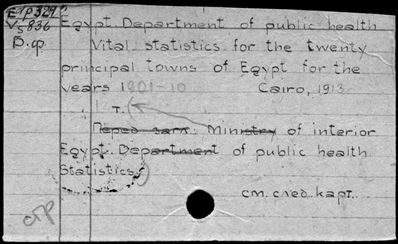 Egypt. Department of public health
Vital statistics for the twenty
principal towns of Egypt for the
years 1901-10 Cairo, 1913
1 т.
Перед загл. Ministry of interior
Egypt. Department of public health
Statistics.)
см. след. карт.